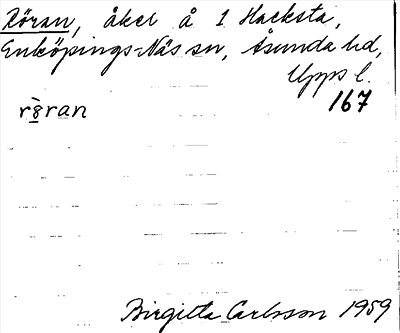 Röran, åker å 1 Hacksta,
Enköpings-Näs sn, Åsunda hd,
Upps l.
167
rö̀ran
Birgitta Carlsson 1959